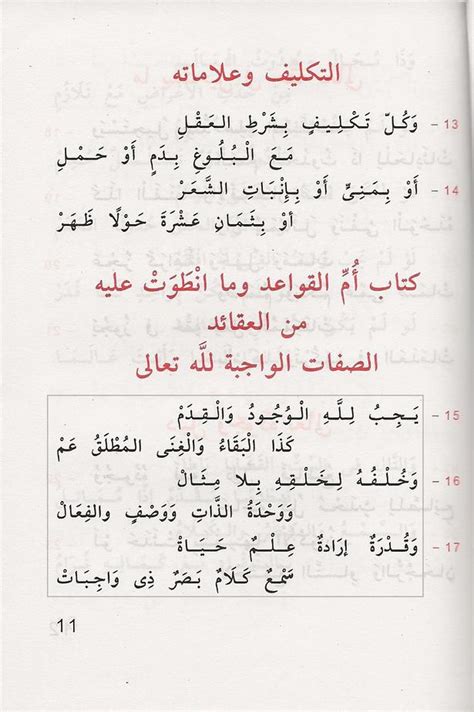 التكليف وعلاماته
13 - وَكُلّ تَكْلِيفٍ بِشَرْطِ العَقْلِ
مَعَ الْبُلُوغِ بِدَمٍ أَوْ حَمْلِ
14 - أَوْ بِمَنِيٍّ أَوْ بِإِنْبَاتِ الشَّعَرْ
أَوْ بِثَمَانِ عَشْرَةَ حَوْلًا ظَهَرْ
كتاب أُمِّ القواعد وما انْطَوَتْ عليه
من العقائد
الصفات الواجبة للَّه تعالى
15 - يَجِبُ لِلَّهِ الْوُجُودُ وَالْقِدَمْ
كَذَا الْبَقَاءُ وَالْغِنَى المُطْلَقُ عَمْ
16 - وَخُلْفُهُ لِخَلْقِهِ بِلا مِثَالْ
وَوَحْدَةُ الذَّاتِ وَوَصْفٍ وَالفِعَالْ
17 - وَقُدْرَةٌ إِرَادَةٌ عِلْمٌ حَيَاةْ
سَمْعٌ كَلَامٌ بَصَرٌ ذِي وَاجِبَاتْ
11